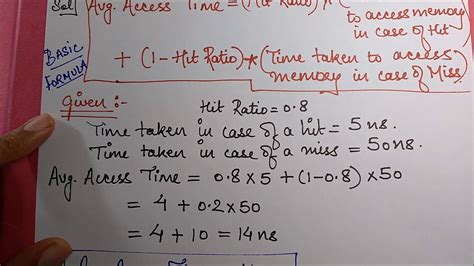 Sol
Avg. Access Time = (Hit Ratio) * (
to access memory
in case of Hit
+ (1 - Hit Ratio) * (Time taken to access
memory in case of Miss)
BASIC
FORMULA
Given :-
Hit Ratio = 0.8
Time taken in case of a hit = 5 ns.
Time taken in case of a miss = 50 ns.
Avg. Access Time = 0.8 x 5 + (1-0.8) x 50
= 4 + 0.2 x 50
= 4 + 10 = 14 ns